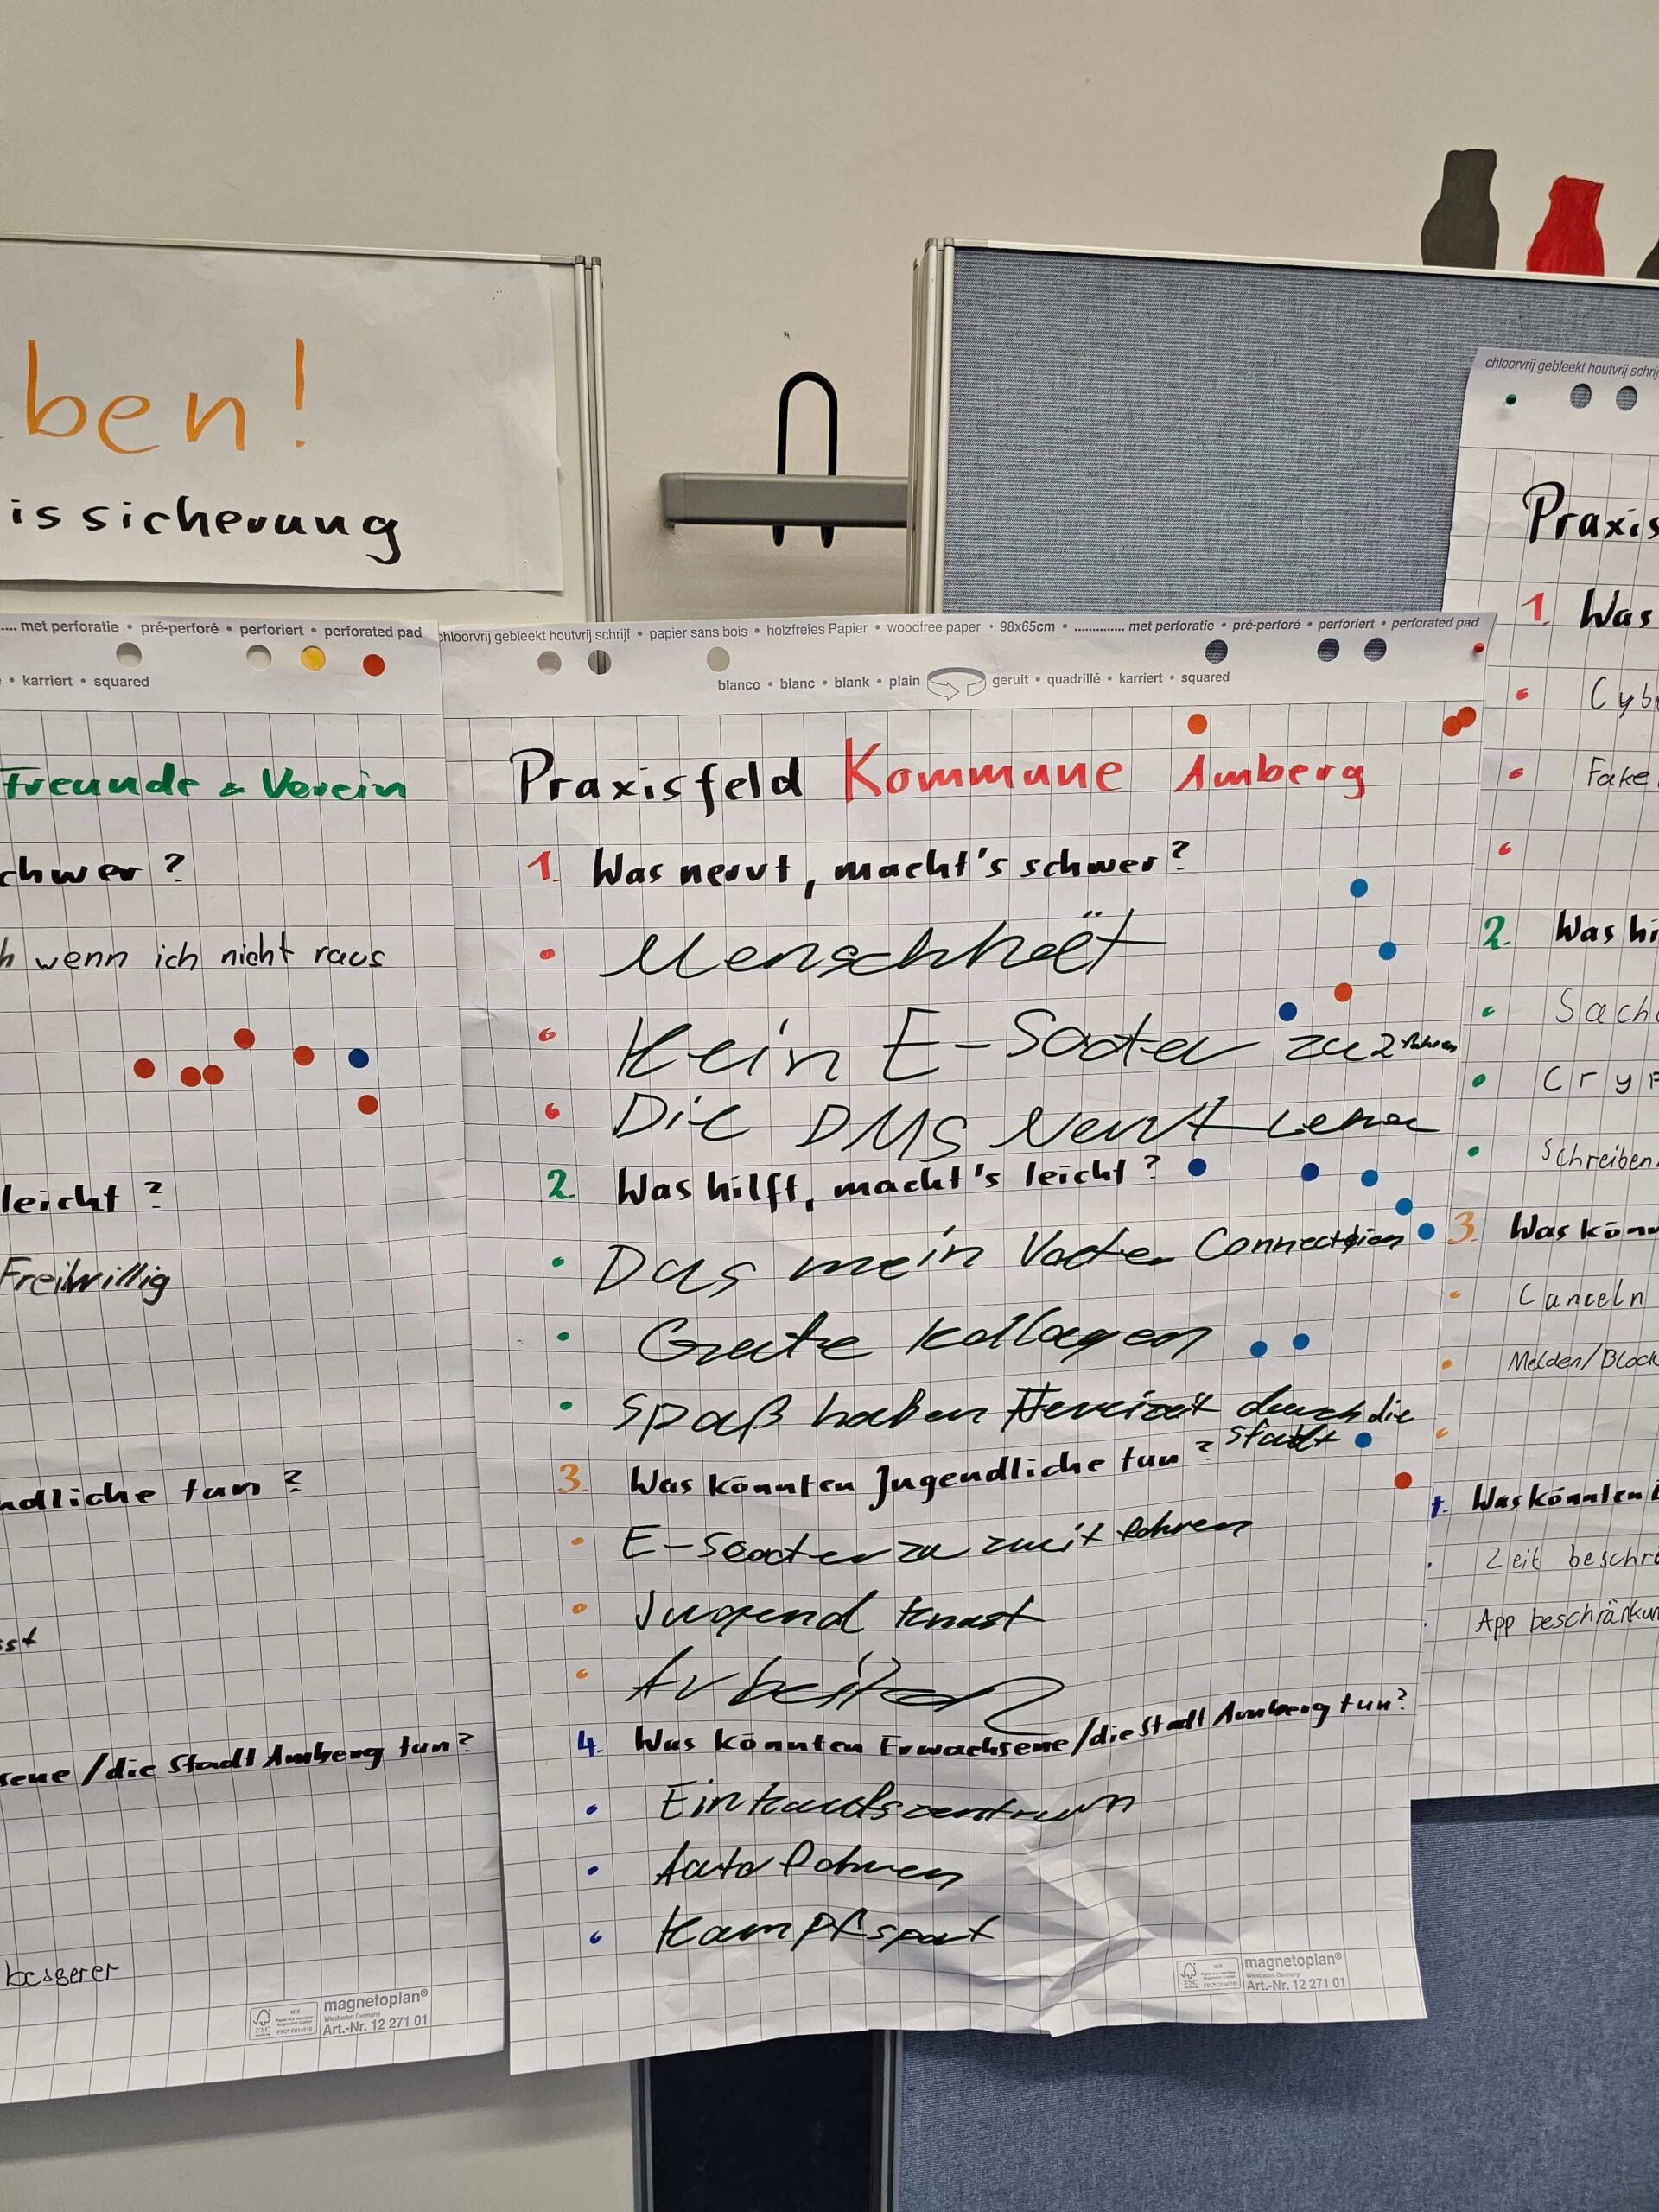 ben!
issicherung
.... met perforatie • pré-perforé • perforiert • perforated pad
• karriert • squared
Freunde & Verein
chwer?
h wenn ich nicht raus
leicht?
Freiwillig
ndliche tun?
sst
sene/die Stadt Amberg tun?
besserer
FSC
MIX
magnetoplan®
Wiesbaden Germany
Art.-Nr. 12 271 01
chloorvrij gebleekt houtvrij schrijf • papier sans bois • holzfreies Papier • woodfree paper • 98x65cm • .............. met perforatie • pré-perforé • perforiert • perforated pad
blanco • blanc • blank • plain geruit • quadrillé • karriert • squared
Praxisfeld Kommune Amberg
1. Was nervt, macht's schwer?
• Menschheit
• Kein E-Scoter zu 2 fahren
• Die DMS Nervt
2. Was hilft, macht's leicht?
• Das mein Vater Connection
• Gute Kollagen
• Spaß haben durch die
Stadt
3. Was könnten Jugendliche tun?
• E-Scooter zu zweit fahren
• Jugend knast
• Arbeiten
4. Was könnten Erwachsene/die Stadt Amberg tun?
• Einkaufszentrum
• Auto fahren
• Kampfsport
FSC
MIX
magnetoplan®
Wiesbaden Germany
Art.-Nr. 12 271 01
chloorvrij gebleekt houtvrij schrij
Praxis
1. Was
• Cyb
• Fake
•
2. Was hi
• Sach
• Cryp
• Schreiben
3. Was könn
• Canceln
• Melden/Block
•
4. Was könnten
• Zeit beschr
• App beschränkun